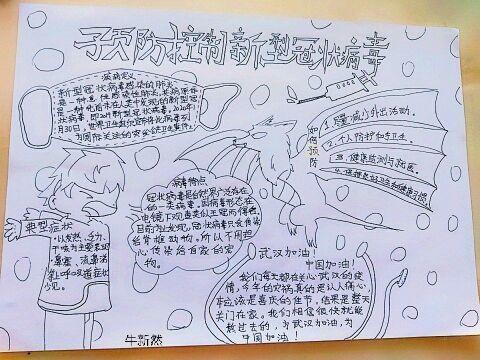 预防控制新型冠状病毒
疾病定义
新型冠状病毒感染的肺炎
是一种急性感染性肺炎,其病原体
是一种先前未在人类中发现的新型冠
状病毒,即2019新型冠状病毒。2020年1
月30日,世界卫生组织宣布将此病毒列
为国际关注的突发公共卫生事件。
如何预防
1.尽量减少外出活动。
2.个人防护和手卫生
3.健康监测与就医。
4.保持良好卫生和健康习惯
病毒特点
冠状病毒是自然界广泛存在
的一类病毒,因病毒形态在
电镜下观查类似王冠而得名。
目前为止发现,冠状病毒只会传染
给脊椎动物。所以不用担
心传染给自家的宠
物。
典型症状
以发热、乏力、
干咳为主要表现
鼻塞、流鼻涕
等上呼吸道症状
少见。
武汉加油!
中国加油!
我们每天都在关心武汉的疫
情,今年的灾祸真的是让人痛心,
本应该是喜庆的佳节,结果是整天
关门在家。我们相信很快就能
熬过去的,为武汉加油,为
中国加油!
牛新然